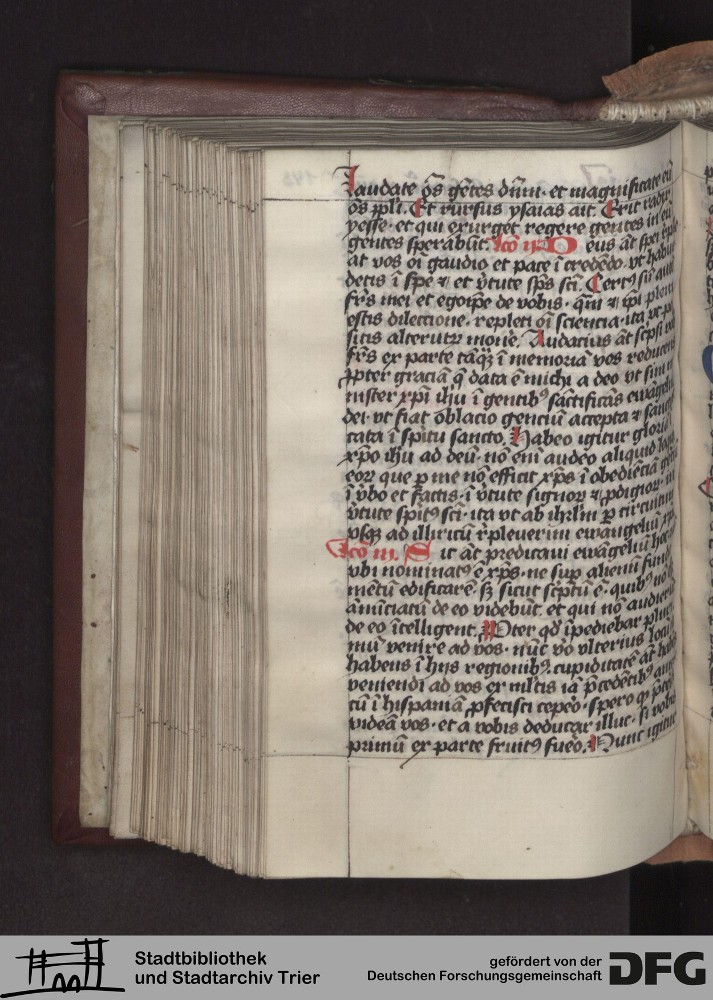 Laudate o͞s ge͞tes dn͞m· et magnificate eu͞
o͞s pp͞li. Et rursus ysaias ait. Erit radix
yesse· et qui exurget regere gentes in eu͞
gentes sperabu͞t. lc͞o ii· Deus a͞t spei
at vos oi͞ gaudio et pace i͞ crede͞do· vt habu͞
detis i͞ spe ⁊ et v͞tute sp͞s sc͞i. Certꝰ su͞
fr͞s mei et egoip͞e de vobis· qm͞ ⁊ ip͞i pleni
estis dileccione· repleti oi͞ sciencia· ita vt
sitis alterutrꝝ mone͞. Audacius a͞t scpsi
fr͞s ex parte ta͞qꝫ i͞ memoria͞ vos reducens
ꝓpter gracia͞ q͞ data e͞ michi a deo vt sim
nister xp͞i ih͞u i͞ gentibꝰ sa͞ctifica͞s
dei· vt fiat oblacio genciu͞ accepta ⁊
cata i͞ spitu sancto. Habeo igitur
xp͞o ih͞u ad deu͞· no͞ eni͞ audeo aliquid
eoꝝ que ꝑ me no͞ efficit xp͞s i͞ obedie͞cia͞
i͞ v͞bo et factis· i͞ v͞tute signoꝝ ⁊ ꝓdigioꝝ·
v͞tute spit9 sc͞i· ita vt ab ihrl͞m ꝑ circuitu͞
vsqꝫ ad illiricu͞ r͞pleuerim ewangeliu͞
lc͞o iii. Sic a͞t predicaui ewa͞geliu͞
vbi nominatꝰ e͞ xp͞s· ne suꝑ alienu͞
me͞tu͞ edificare͞· sꝫ sicut sc͞ptu͞ e͞· quibꝰ no͞
a͞nu͞ciatu͞ de eo videbu͞t. et qui no͞
de eo i͞telligent. Pter qd͞ i͞pediebar
mu͞ venire ad vos· nu͞c v͞o vlterius
habens i͞ hiis regionibꝰ· cupiditate͞ a͞t
veniendi ad vos ex ml͞tis ia͞ p͞cede͞tibꝰ
cu͞ i͞ hispania͞ ꝓficisci cepeo· spero
videa͞ vos· et a vobis deducar illuc· si
primu͞ ex parte fruitꝰ fueo. Nunc igitur
Stadtbibliothek
und Stadtarchiv Trier
gefördert von der
Deutschen Forschungsgemeinschaft
DFG